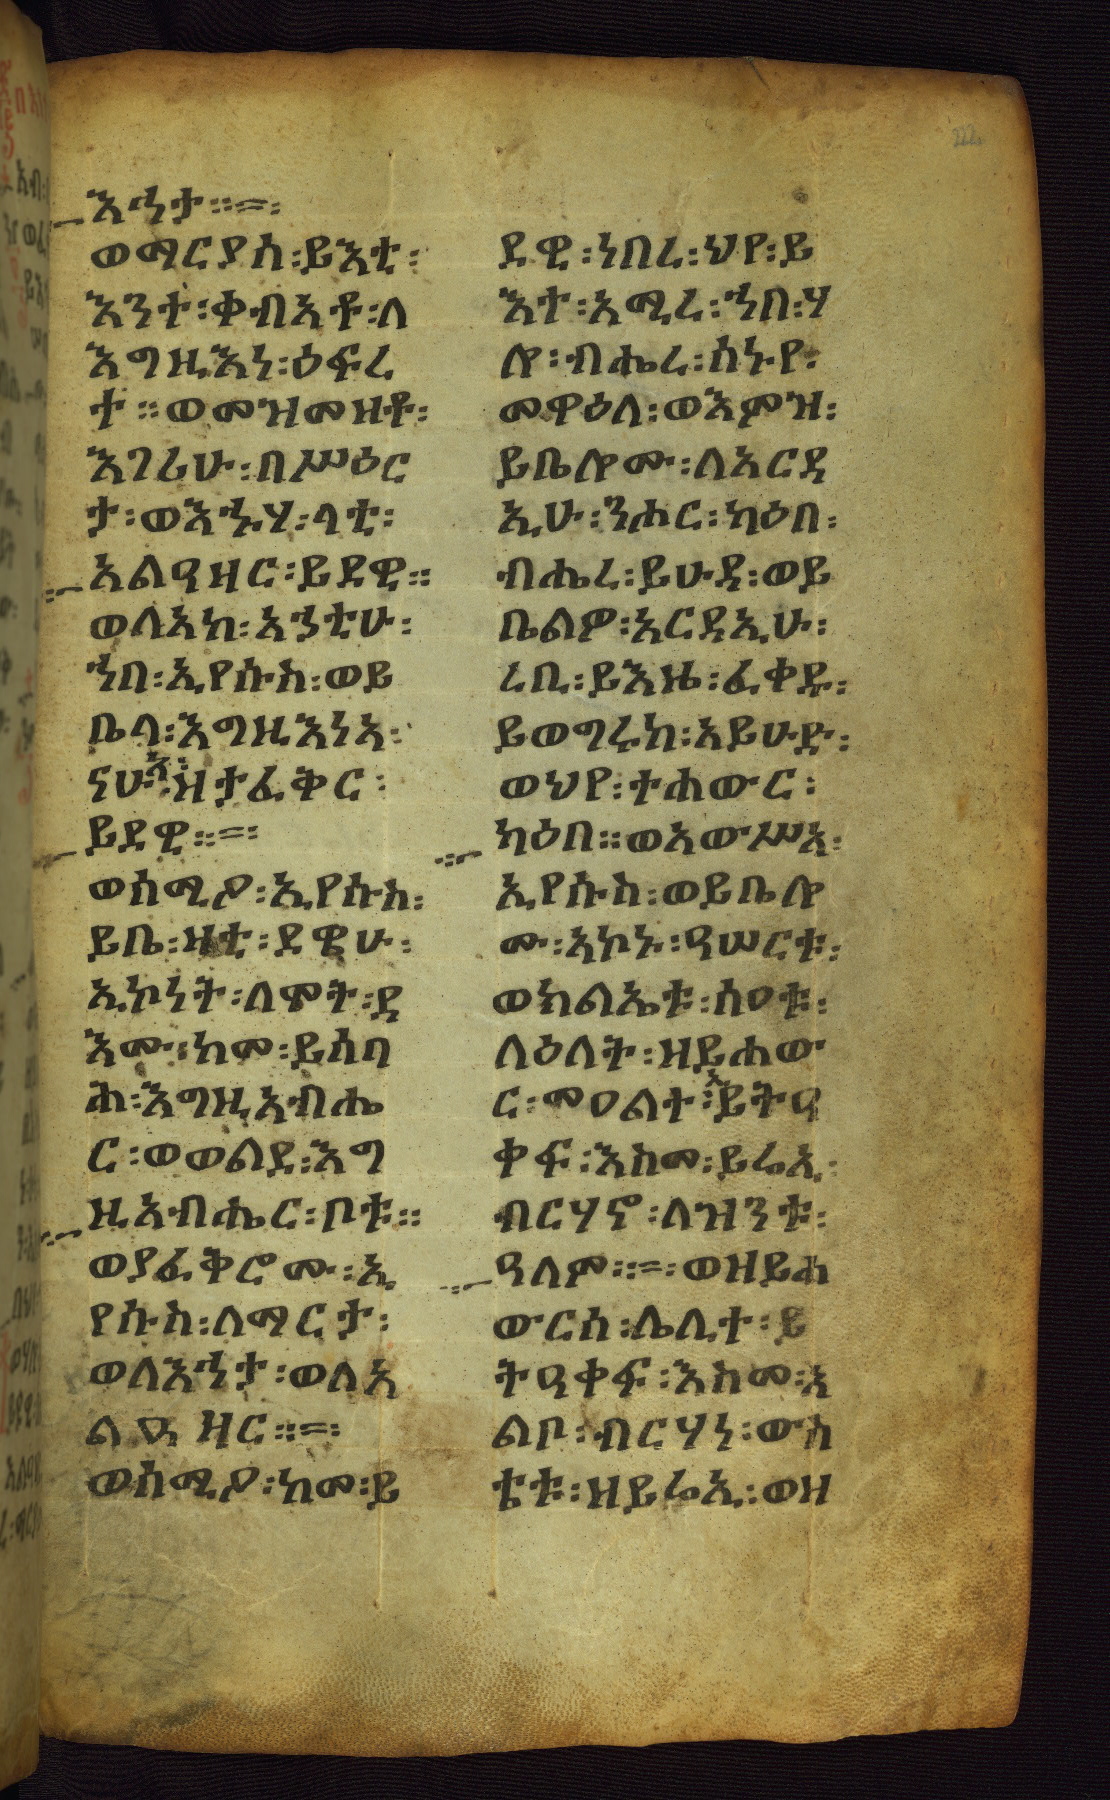 እኅታ።=፡
ወማርያስ፡ይእቲ፡
እንተ፡ቀብአቶ፡ለ
እግዚእነ፡ዕፍረ
ተ።ወመዝመዘቶ፡
እገሪሁ፡በሥዕር
ታ፡ወእኁሃ፡ላቲ፡
አልዓዛር፡ይደዊ።
ወለአከ፡አኅቲሁ፡
ኀበ፡ኢየሱስ፡ወይ
ቤላ፡እግዚእነአ፡
ናሁ፡ዘታፈቅር፡
ይደዊ።=፡
ወሰሚዖ፡ኢየሱስ፡
ይቤ፡ዛቲ፡ደዌሁ፡
ኢኮነት፡ለሞት፡ዳ
እሙ፡ከመ፡ይሰባ
ሕ፡እግዚአብሔ
ር፡ወወልደ፡እግ
ዚአብሔር፡ቦቱ።
ወያፈቅሮሙ፡ኢ
የሱስ፡ለማርታ፡
ወለእኅታ፡ወለአ
ልዓዛር።=፡
ወሰሚዖ፡ከመ፡ይ
ደዊ፡ነበረ፡ህየ፡ይ
እተ፡አሚረ፡ኀበ፡ሃ
ሎ፡ብሔረ፡ሰኑየ፡
መዋዕለ፡ወእምዝ፡
ይቤሎሙ፡ለአርዳ
ኢሁ፡ንሑር፡ካዕበ፡
ብሔረ፡ይሁዳ፡ወይ
ቤልዎ፡አርዳኢሁ፡
ረቢ፡ይእዜ፡ፈቀዱ፡
ይወግሩከ፡አይሁድ፡
ወህየ፡ተሐውር፡
ካዕበ።ወአውሥአ፡
ኢየሱስ፡ወይቤሎ
ሙ፡አኮኑ፡ዓሠርቱ፡
ወክልኤቱ፡ሰዐቱ፡
ለዕለት፡ዘይሐው
ር፡መዐልተ፡ኢይትዓ
ቀፍ፡እስመ፡ይሬኢ፡
ብርሃኖ፡ለዝንቱ፡
ዓለም።=፡ወዘይሐ
ውርሰ፡ሌሊተ፡ይ
ትዓቀፍ፡እስመ፡አ
ልቦ፡ብርሃነ፡ውስ
ቴቱ፡ዘይሬኢ፡ወዘ